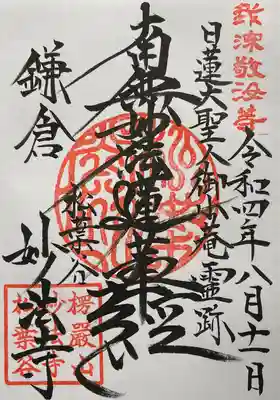 我深敬汝等
令和四年八月十一日
日蓮大聖人御小庵霊跡
南無妙法蓮華経
松葉谷
鎌倉
妙法寺
楞嚴山
妙法寺
松葉谷